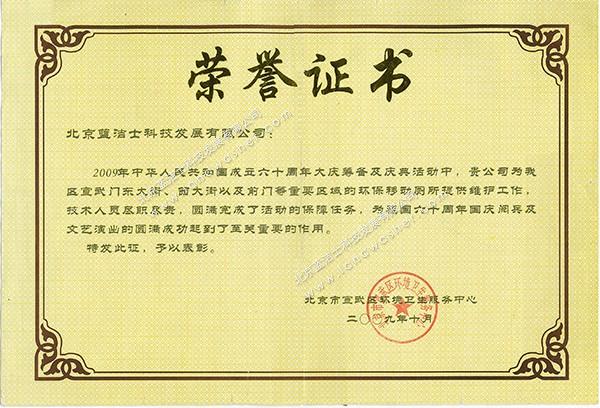 荣誉证书
北京蓝洁士科技发展有限公司：
2009年中华人民共和国成立六十周年大庆筹备及庆典活动中，贵公司为我
区宣武门东大街、西大街以及前门等重要区域的环保移动厕所提供维护工作，
技术人员尽职尽责，圆满完成了活动的保障任务，为我国六十周年国庆阅兵及
文艺演出的圆满成功起到了至关重要的作用。
特发此证，予以表彰。
北京市宣武区环境卫生服务中心
二〇〇九年十月
北京蓝洁士科技发展有限公司